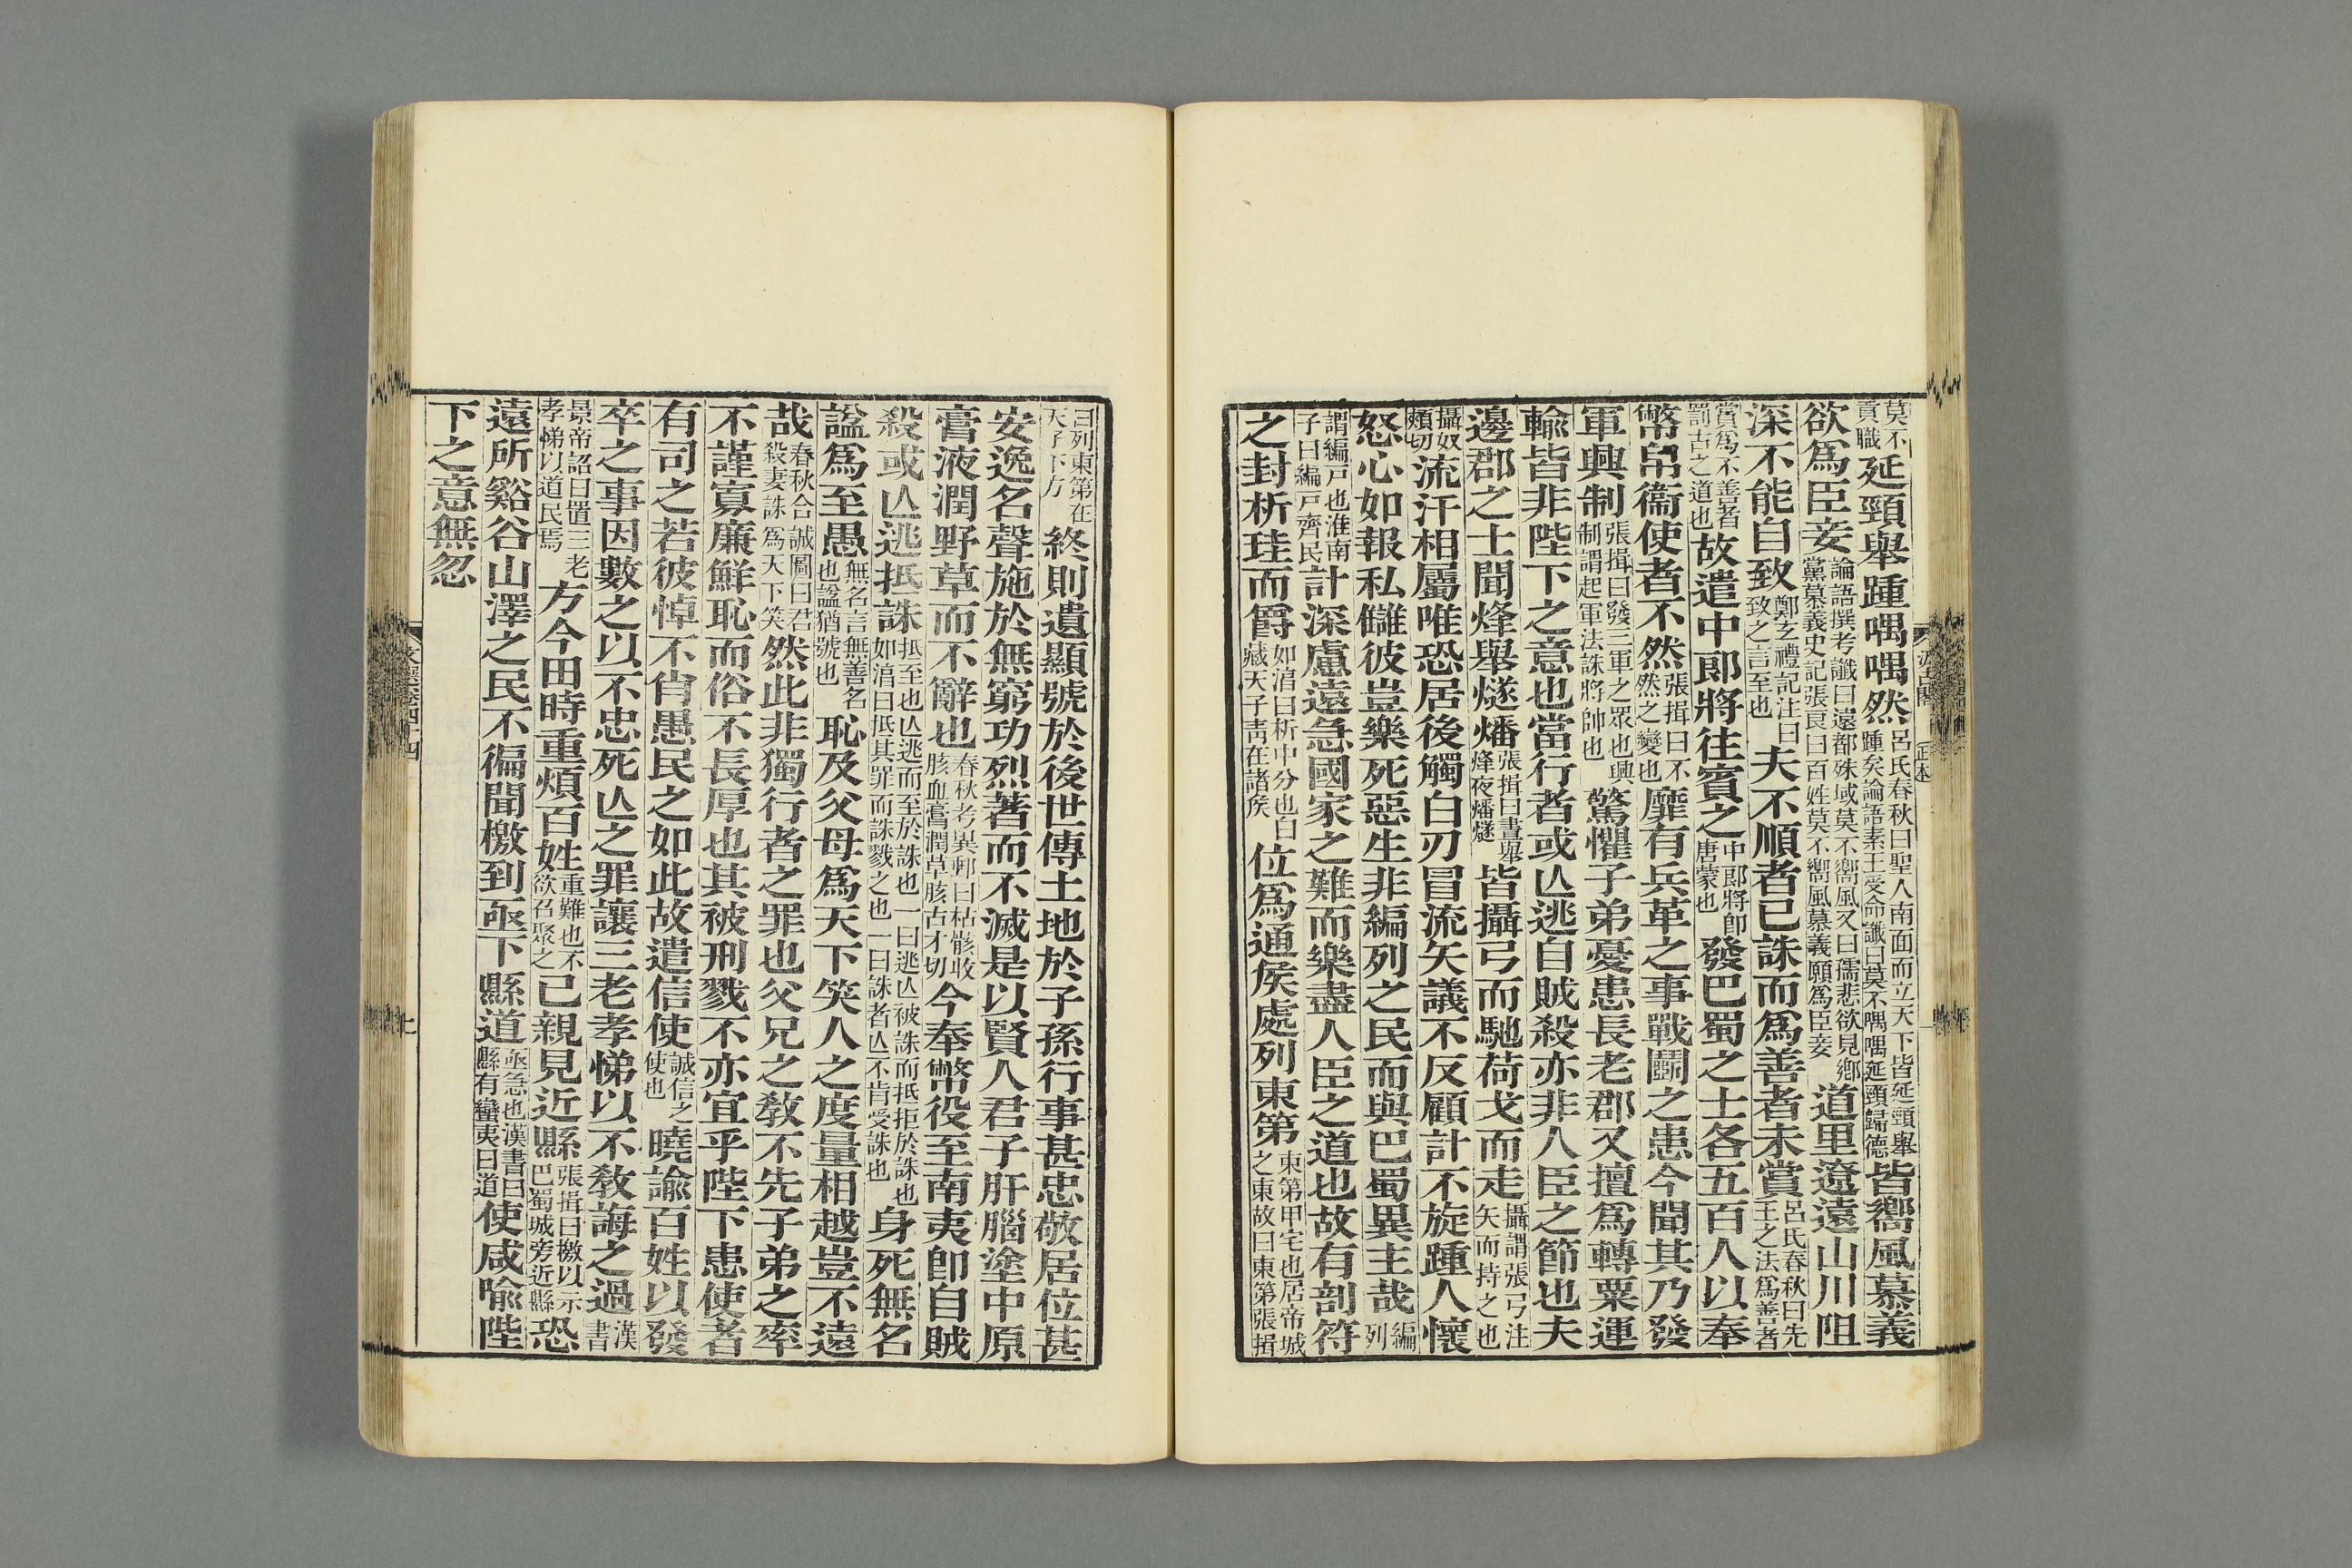 莫不貢職延頸舉踵喁喁然呂氏春秋曰聖人南面而立天下皆延頸舉踵矣論語素王受命讖曰莫不喁喁延頸歸德皆嚮風慕義
欲爲臣妾論語撰考讖曰遠都殊域莫不嚮風又曰儒悲欲見鄉黨慕義史記張良曰百姓莫不嚮風慕義願爲臣妾道里遼遠山川阻
深不能自致鄭玄禮記注曰致之言至也夫不順者已誅而爲善者未賞呂氏春秋曰先王之法爲善者
賞爲不善者罰古之道也故遣中郎將往賓之中郎將卽唐蒙也發巴蜀之士各五百人以奉
幣帛衞使者不然張揖曰不然之變也靡有兵革之事戰鬭之患今聞其乃發
軍興制張揖曰發三軍之眾也興制謂起軍法誅將帥也驚懼子弟憂患長老郡又擅爲轉粟運
輸皆非陛下之意也當行者或亾逃自賊殺亦非人臣之節也夫
邊郡之士聞烽舉燧燔張揖曰晝舉烽夜燔燧皆攝弓而馳荷戈而走攝謂張弓注矢而持之也
攝奴頰切流汗相屬唯恐居後觸白刃冒流矢議不反顧計不旋踵人懷
怒心如報私讎彼豈樂死惡生非編列之民而與巴蜀異主哉編列
謂編戸也淮南子曰編戸齊民計深慮遠急國家之難而樂盡人臣之道也故有剖符
之封析珪而爵如淳曰析中分也白藏天子靑在諸矦位爲通侯處列東第東第甲宅也居帝城之東故曰東第張揖
曰列東第在天子下方終則遺顯號於後世傳土地於子孫行事甚忠敬居位甚
安逸名聲施於無窮功烈著而不滅是以賢人君子肝腦塗中原
膏液潤野草而不辭也春秋考異郵曰枯骸收胲血膏潤草胲古才切今奉幣役至南夷卽自賊
殺或亾逃抵誅抵至也亾逃而至於誅也一曰逃亾被誅而抵拒於誅也如淳曰抵其罪而誅戮之也一曰誅者亾不肯受誅也身死無名
諡爲至愚無名言無善名也諡猶號也恥及父母爲天下笑人之度量相越豈不遠
哉春秋合誠圖曰君殺妻誅爲天下笑然此非獨行者之罪也父兄之敎不先子弟之率
不謹寡廉鮮恥而俗不長厚也其被刑戮不亦宜乎陛下患使者
有司之若彼悼不肖愚民之如此故遣信使誠信之使也曉諭百姓以發
卒之事因數之以不忠死亾之罪讓三老孝悌以不敎誨之過漢書
景帝詔曰置三老孝悌以道民焉方今田時重煩百姓重難也不欲召聚之已親見近縣張揖曰檄以示巴蜀城旁近縣恐
遠所谿谷山澤之民不徧聞檄到亟下縣道亟急也漢書曰縣有蠻夷曰道使咸喻陛
下之意無忽
文選卷四十四